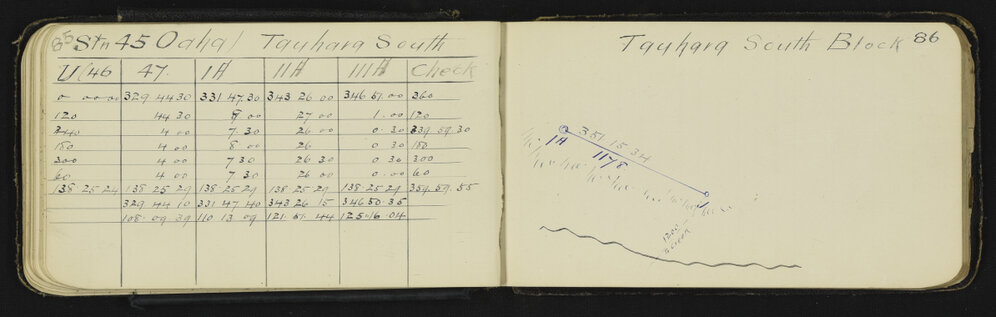 85 Stn 45 Oaha) Tauhara South
46 47. IH IIH IIIH Check
0 00 00 329 44 30 331 47.30 343 26 00 346 51.00 360
120 44 30 8 00 27 00 1.00 120
240 4 00 7 30 26 00 0.30 239.59.30
180 4 00 8 00 26 0 30 180
300 4 00 7 30 26 30 0 30 300
60 4 00 7 30 26 00 0.00 60
138 25 29 138 25 29 138 25 29 138 25 29 138 25 29 359.59.55
329 44 10 331 47.40 343 26 15 346 50 35
108.09.39 110 13 09 121.51.44 125.16.04
Tauhara South Block 86
351 15 34
IH
1178
1200